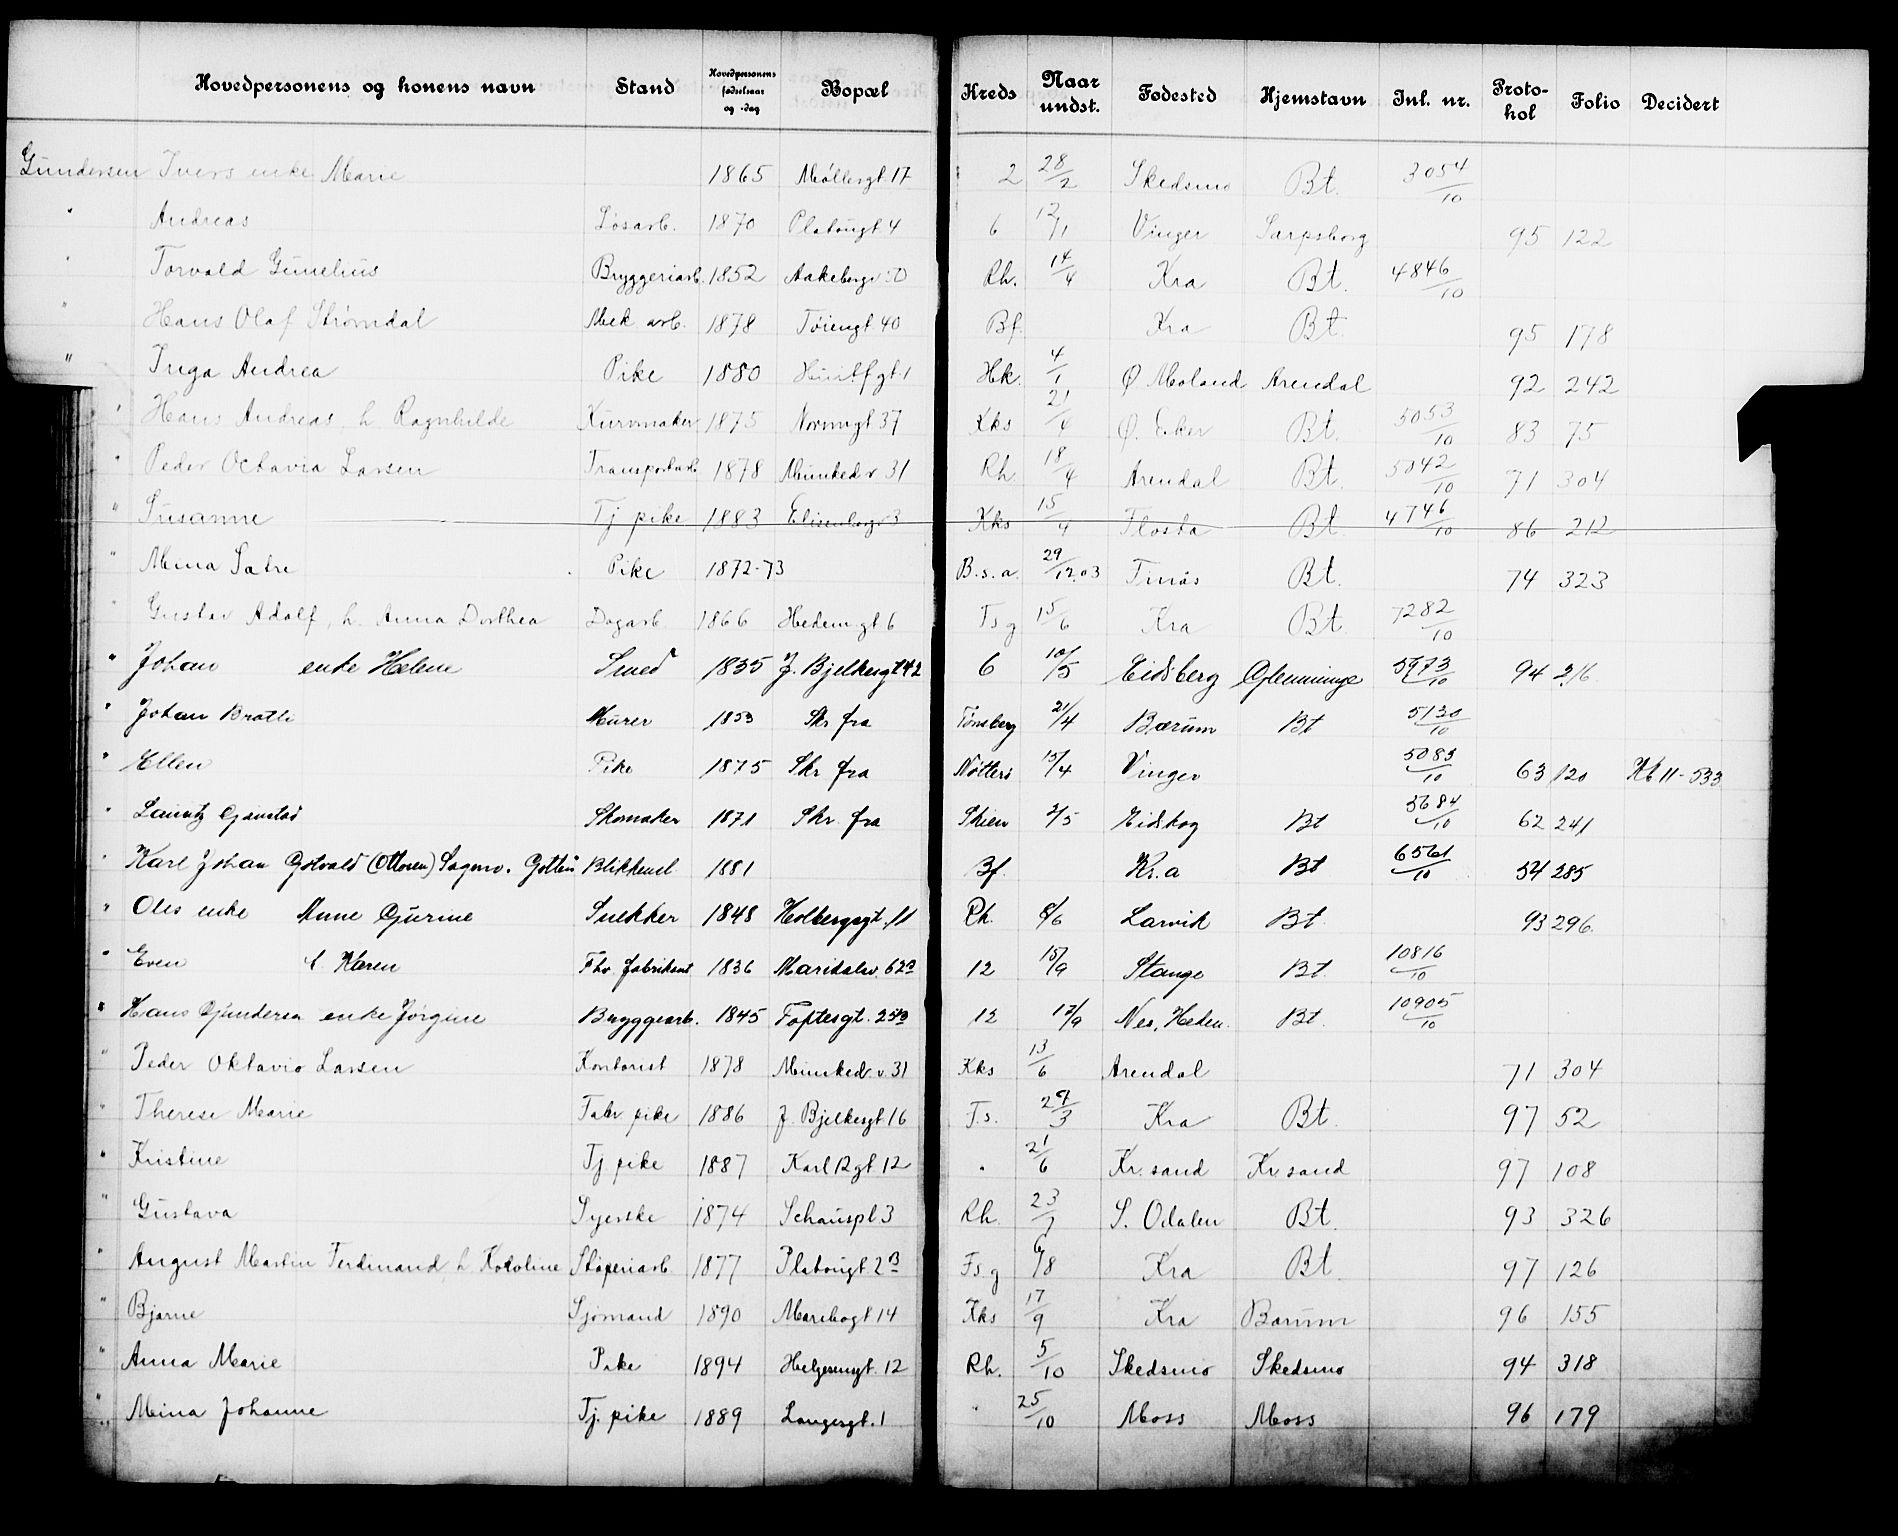 Hovedpersonens og konens navn Stand Hovedpersonens fødselsaar og -dag Bopæl Kreds Naar undst. Fødested Hjemstavn Inl. nr. Protokol Folio Decidert
Gundersen Ivers enke Marie 1865 Møllergt 17 2 28/2 Skedsmo Bt. 3054/10
" Andreas Løsarb. 1870 Platougt 4 6 12/1 Vinger Sarpsborg 95 122
" Torvald Gunelius Bryggeriarb. 1852 Aakebergv 50 Rh. 14/4 Kra Bt. 4846/10
" Hans Olaf Strømdal Mek arb. 1878 Tøiengt 40 Bf. Kra Bt. 95 178
" Inga Andrea Pike 1880 Huitfgt 1 Hk. 4/1 Ø Moland Arendal 92 242
" Hans Andreas, h. Ragnhilde Kurvmaker 1875 Normngt 37 Kks 21/4 Ø. Eker Bt. 5053/10 83 75
" Peder Octavia Larsen Transportarb. 1878 Munkedv 31 Rh 18/4 Arendal Bt. 5042/10 71 304
" Susanne Tj pike 1883 Elisenbergv 3 Kks 15/4 Flosta Bt. 4746/10 86 212
" Mina Satre Pike 1872-73 B.s.a. 29/12.03 Bt. 74 323
" Gustav Adolf, h. Anna Dorthea Dagarb 1866 Hedemgt 6 Tsg 15/6 Kra Bt. 7282/10
" Johan enke Helene Smed 1835 J. Bjelkesgt 42 6 10/5 Eidsberg Glemminge 5973/10 94 216
" Johan Bratli Murer 1853 Skr fra Tønsberg 21/4 Bærum Bt 5130/10
" Ellen Pike 1875 Skr fra Nøtterø 15/4 Vinger 5083/10 63 120 Kb 11-533
" Lauritz Gjerstad Skomaker 1871 Skr. fra Skien 2/5 Eidskog Bt 5684/10 62 241
" Karl Johan Gotvald (Ottoren) Blikkensl 1881 Bf. Kr.a Bt 6561/10 54 285
" Oles enke Anne Gurine Snekker 1848 Holbergsgt 11 Rh. 8/6 Larvik Bt. 93 296
" Even h Karen Fhv. fabrikant 1836 Maridalsv. 62a 12 15/9 Stange Bt. 10816/10
" Hans Gunderen enke Jørgine Bryggearb. 1845 Toftesgt. 25b 12 17/9 Nes, Hedm. Bt. 10905/10
" Peder Oktavio Larsen Kontorist 1878 Munkedv. 31 Kks 13/6 Arendal 71 304
" Therese Marie Fabr pike 1886 J. Bjelkesgt 16 T.s. 29/3 Kra Bt. 97 52
" Kristine Tj pike 1887 Karl 12 gt 12 " 21/6 Kr.sand Kr.sand 97 108
" Gustava Syerske 1874 Schauspl 3 Rh. 23/7 S. Odalen Bt. 93 326
" August Martin Ferdinand, h Karoline Støperiarb. 1877 Platougt 2b Fsg 6/8 Kra Bt. 97 126
" Bjarne Sjømand 1890 Maribogt 14 Kks 17/9 Kra Bærum 96 155
" Anna Marie Pike 1894 Helgesensgt. 12 Rh. 5/10 Skedsmo Skedsmo 94 318
" Mina Johanne Tj. pike 1889 Langesgt. 1 " 25/10 Moss Moss 96 179